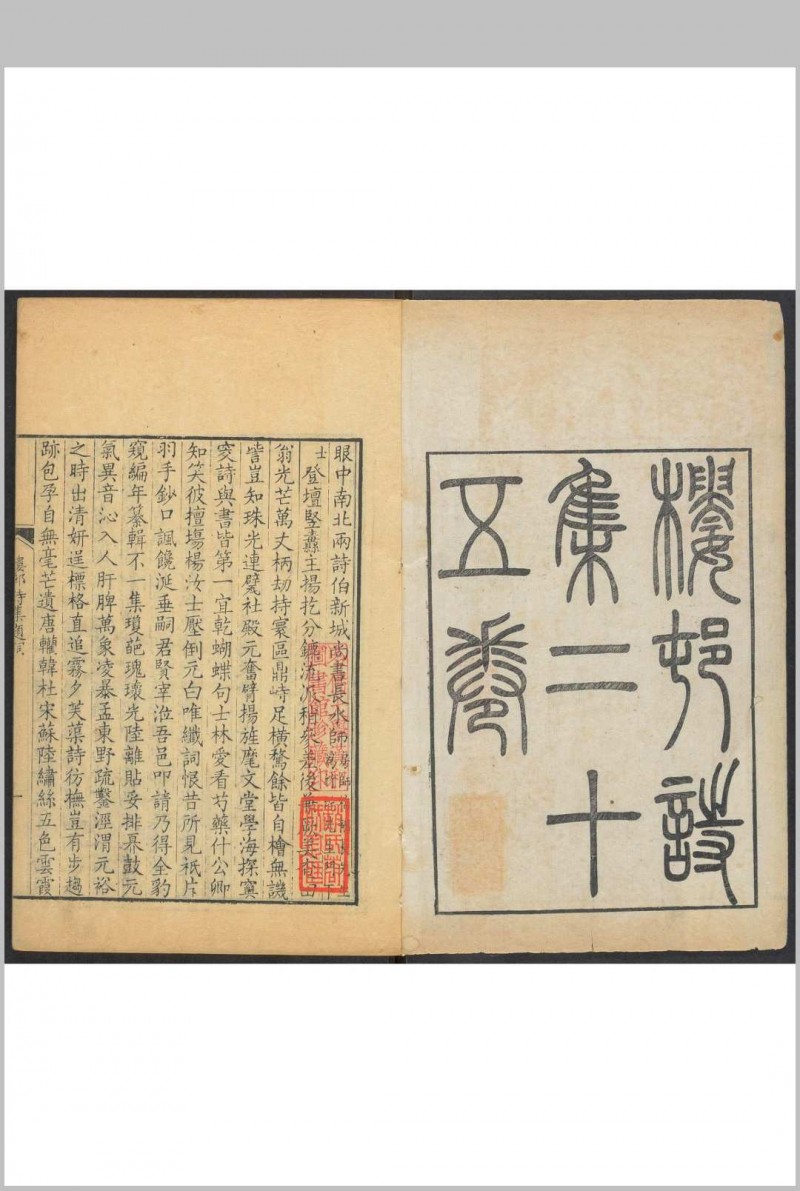 樓邨詩
集二十
五卷
眼中南北兩詩伯新城尚書長水師
士登壇堅纛主揚扢分鑣流派稍衆差後
翁光芒萬丈柄劫持寰區鼎峙足橫騖餘皆自檜無譏
訾豈知珠光連甓社殿元奮臂揚旌麾文堂學海探窅
窔詩與書皆第一宜乾蝴蝶句士林愛看芍藥什公卿
知笑彼擅場楊汝士壓倒元白唯纖詞恨昔所見衹片
羽手鈔口諷饞涎垂嗣君賢宰涖吾邑叩請乃得全豹
窺編年纂輯不一集瓊葩瑰瓌光陸離貼妥排奡鼓元
氣異音沁入人肝脾萬象凌暴孟東野疏鑿涇渭元裕
之時出清妍逞標格直追霧夕芙蕖詩彷橅豈有步趨
跡包孕自無毫芒遺唐轥韓杜宋蘇陸繡絲五色雲霞